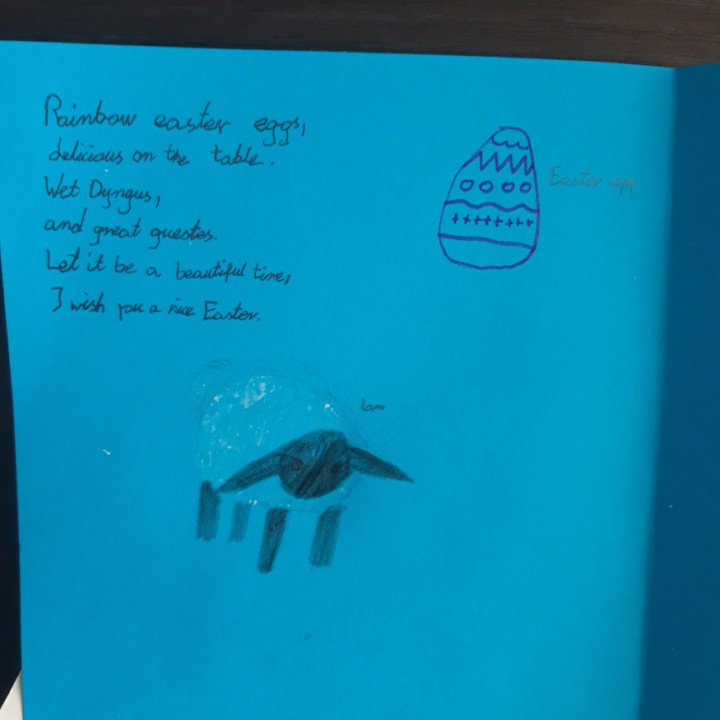 Rainbow easter eggs,
delicious on the table.
Wet Dyngus,
and great guestes.
Let it be a beautiful time,
I wish you a nice Easter.
Easter egg